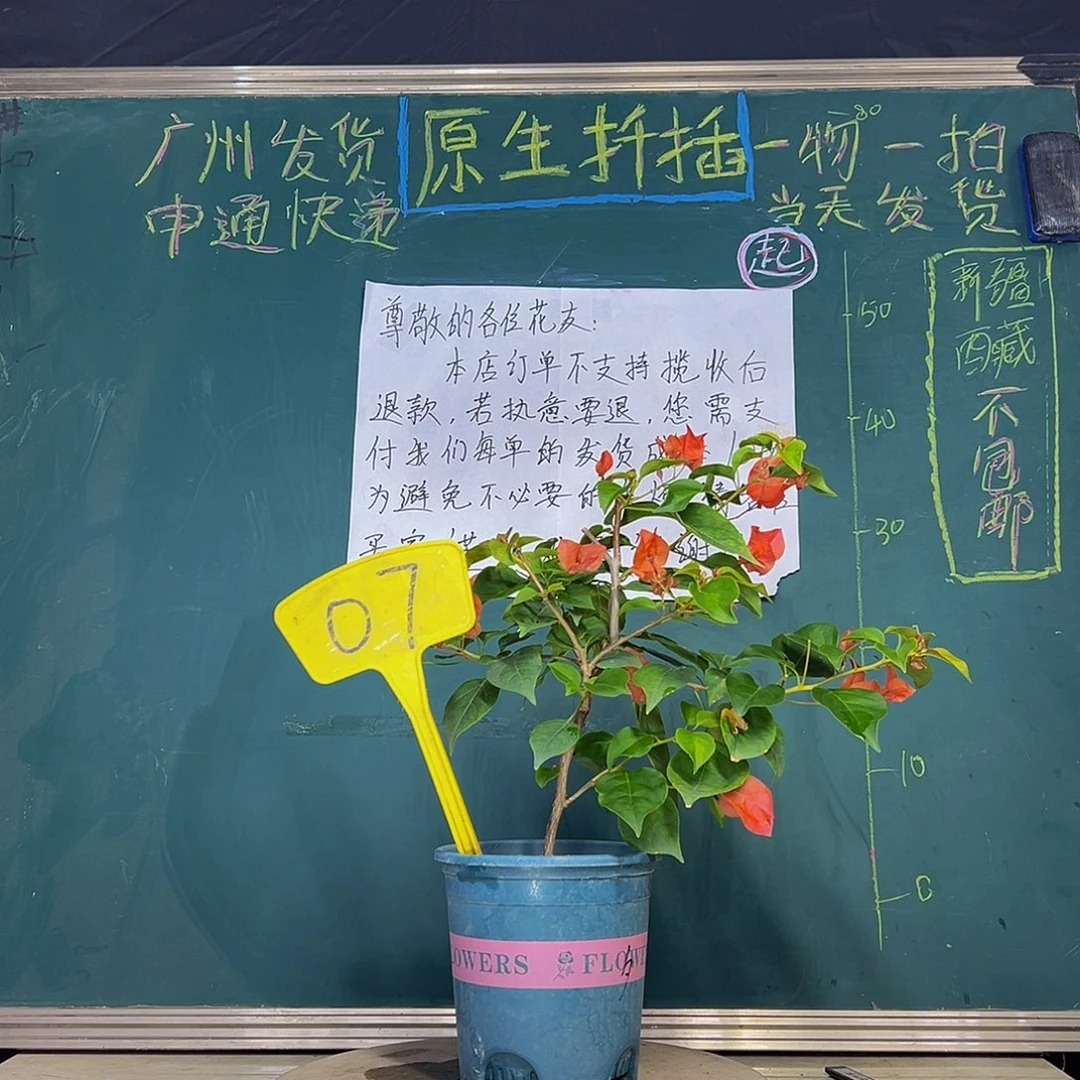 广州发货
申通快递
原生扦插
一物一拍
80
当天发货
起
50
40
30
10
0
新疆
西藏
不包邮
尊敬的各位花友：
本店订单不支持揽收后
退款，若执意要退，您需支
付我们每单的发货成
为避免不必要的
买家
谢
07
LOWERS FLOWE